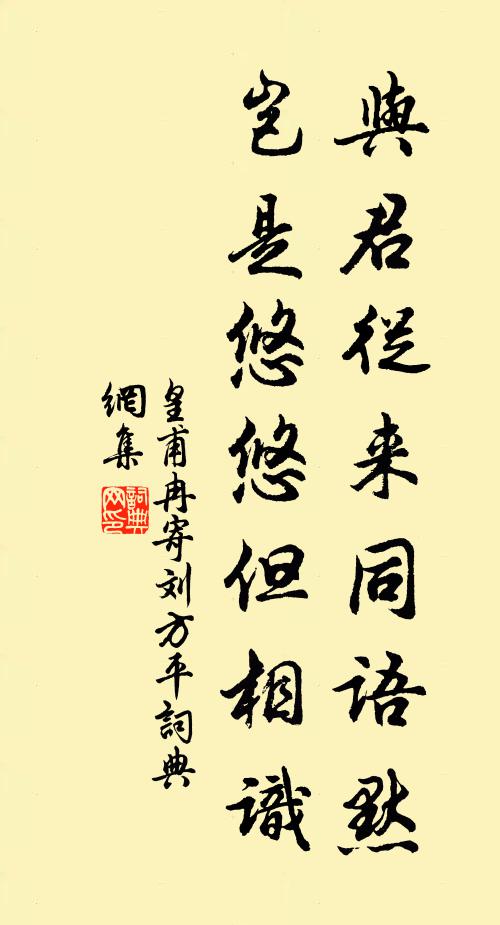 與君從来同語默
豈是悠悠但相識
皇甫冉寄刘方平詞典
網集
詞典
网印